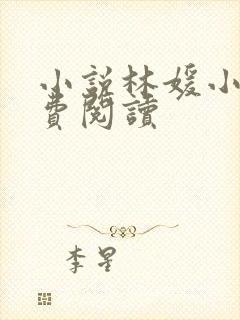 小說林媛小
費閱讀
李星